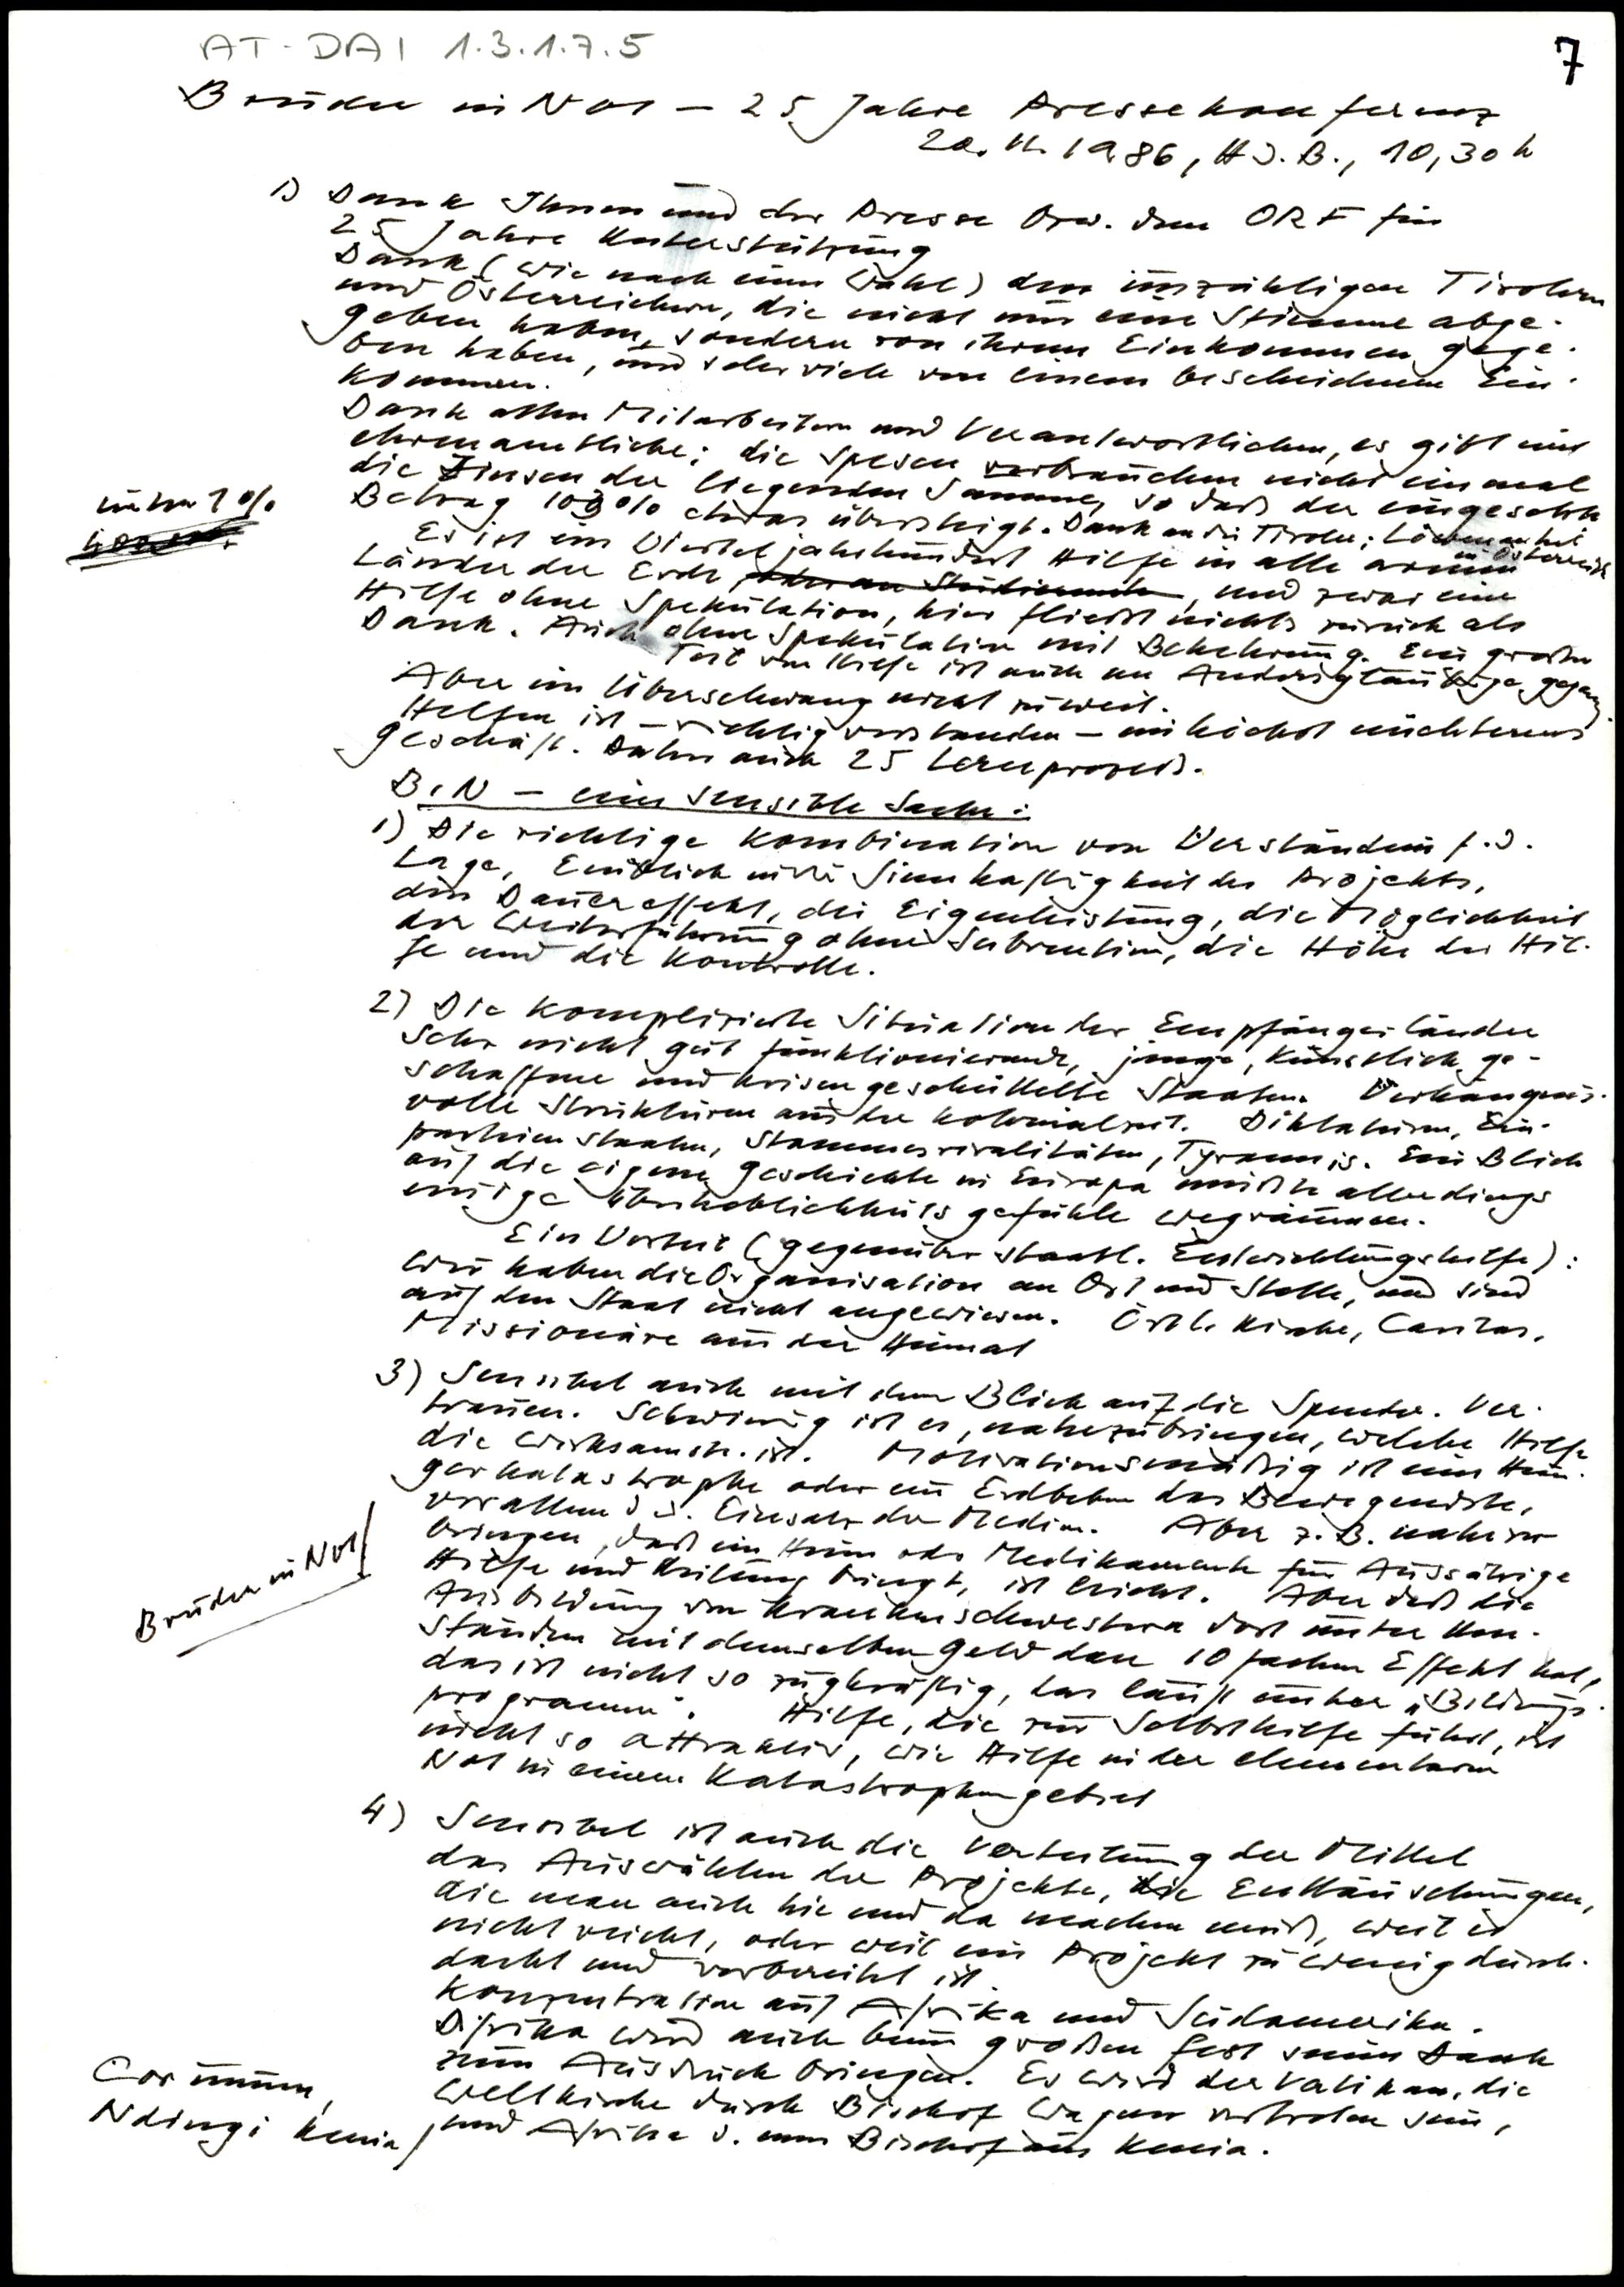 AT-DAI 1.3.1.7.5
7
Bruder in Not – 25 Jahre Pressekonferenz
20. 11. 1986, H.d.B., 10,30 h
1) Dank Ihnen und der Presse bzw. dem ORF für
25 Jahre Unterstützung
Dank (wie nach einer Wahl) den unzähligen Tirolern
und Österreichern, die nicht nur eine Stimme abge-
geben haben, sondern von ihrem Einkommen gege-
ben haben, und sehr viele von einem bescheidenen Ein-
kommen.
Dank allen Mitarbeitern und Verantwortlichen, es gibt nur
ehrenamtliche; die Spesen verbrauchen nicht einmal
die Zinsen der liegenden Summe, so daß der eingesetzte
unter 1 %
Betrag 100% etwas übersteigt. Dank an die Tiroler;
in Österreich
Es ist ein Vierteljahrhundert Hilfe in alle armen
Länder der Erde, und zwar eine
Hilfe ohne Spekulation, hier fließt nichts zurück als
Dank. Auch ohne Spekulation mit Bekehrung. Ein großer
Teil der Hilfe ist auch an Andersgläubige gegangen.
Aber im Überschwang nicht zu weit.
Helfen ist – richtig verstanden – ein höchst nüchternes
Geschäft. Daher auch 25 Lernprozeß.
BiN – eine sensible Sache:
1) Die richtige Kombination von Verständnis f. d.
Lage, Einblick in die Sinnhaftigkeit des Projekts,
den Dauereffekt, die Eigenleistung, die Möglichkeit
der Weiterführung ohne Subvention, die Höhe der Hil-
fe und die Kontrolle.
2) Die komplizierte Situation der Empfängerländer
Sehr nicht gut funktionierende, junge, künstlich ge-
schaffene und krisengeschüttelte Staaten. Verhängnis-
volle Strukturen aus der Kolonialzeit. Diktaturen, Ein-
parteienstaaten, Stammesrivalitäten, Tyrannis. Ein Blick
auf die eigene Geschichte in Europa müßte allerdings
einige Überheblichkeitsgefühle wegräumen.
Ein Vorteil (gegenüber staatl. Entwicklungshilfe):
Wir haben die Organisation an Ort und Stelle, und sind
auf den Staat nicht angewiesen. Örtl. Kirche, Caritas,
Missionäre aus der Heimat
3) Sensibel auch mit dem Blick auf die Spender. Ver-
trauen. Schwierig ist es, nahezubringen, welche Hilfe
die wirksamste ist. Motivationsmäßig ist eine Hun-
gerkatastrophe oder ein Erdbeben das Bewegendste,
vor allem d. d. Einsatz der Medien. Aber z. B. nahezu
bringen, daß ein Heim oder Medikamente für Aussätzige
Bruder in Not
Hilfe und Heilung bringt, ist leicht. Aber daß die
Ausbildung von Krankenschwestern dort unter Um-
ständen mit demselben Geld den 10 fachen Effekt hat,
das ist nicht so zugkräftig, das läuft unter „Bildungs-
programm“. Hilfe, die zur Selbsthilfe führt, ist
nicht so attraktiv, wie Hilfe in der elementaren
Not in einem Katastrophengebiet
4) Sensibel ist auch die Verteilung der Mittel
das Auswählen der Projekte, die Enttäuschungen,
die man auch hie und da machen muß, weil es
nicht reicht, oder weil ein Projekt zu wenig durch-
dacht und vorbereitet ist.
Konzentration auf Afrika und Südamerika.
Afrika wird auch beim großen Fest seinen Dank
zum Ausdruck bringen. Es wird der Vatikan, die
Cor unum,
Weltkirche durch Bischof Wagner vertreten sein,
Ndingi Kenia
und Afrika d. einen Bischof aus Kenia.